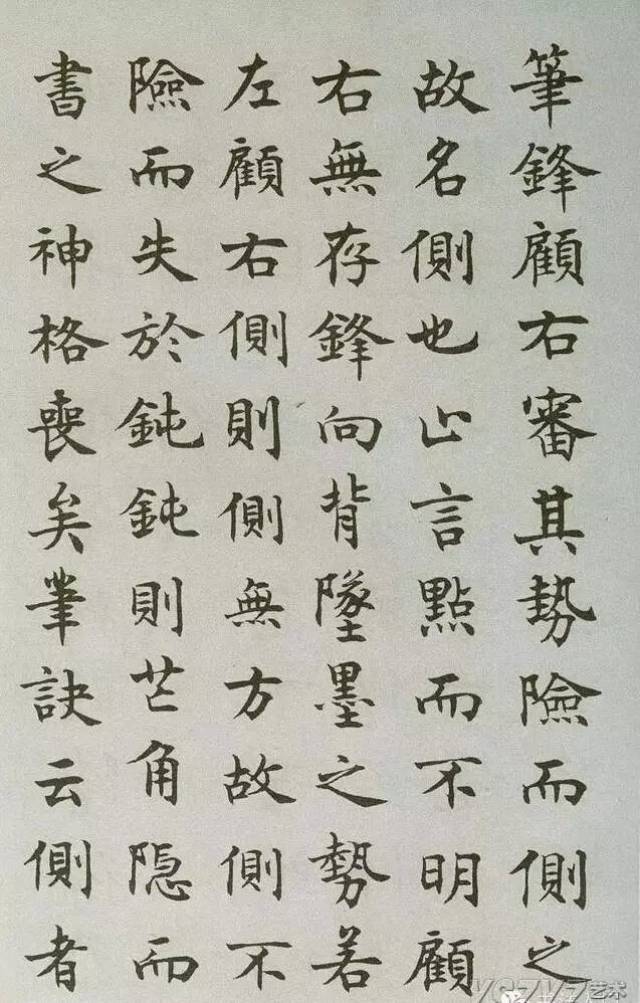 筆鋒顧右審其勢險而側之
故名側也止言點而不明顧
右無存鋒向背墜墨之勢若
左顧右側則側無方故側不
險而失於鈍鈍則芒角隱而
書之神格喪矣筆訣云側者